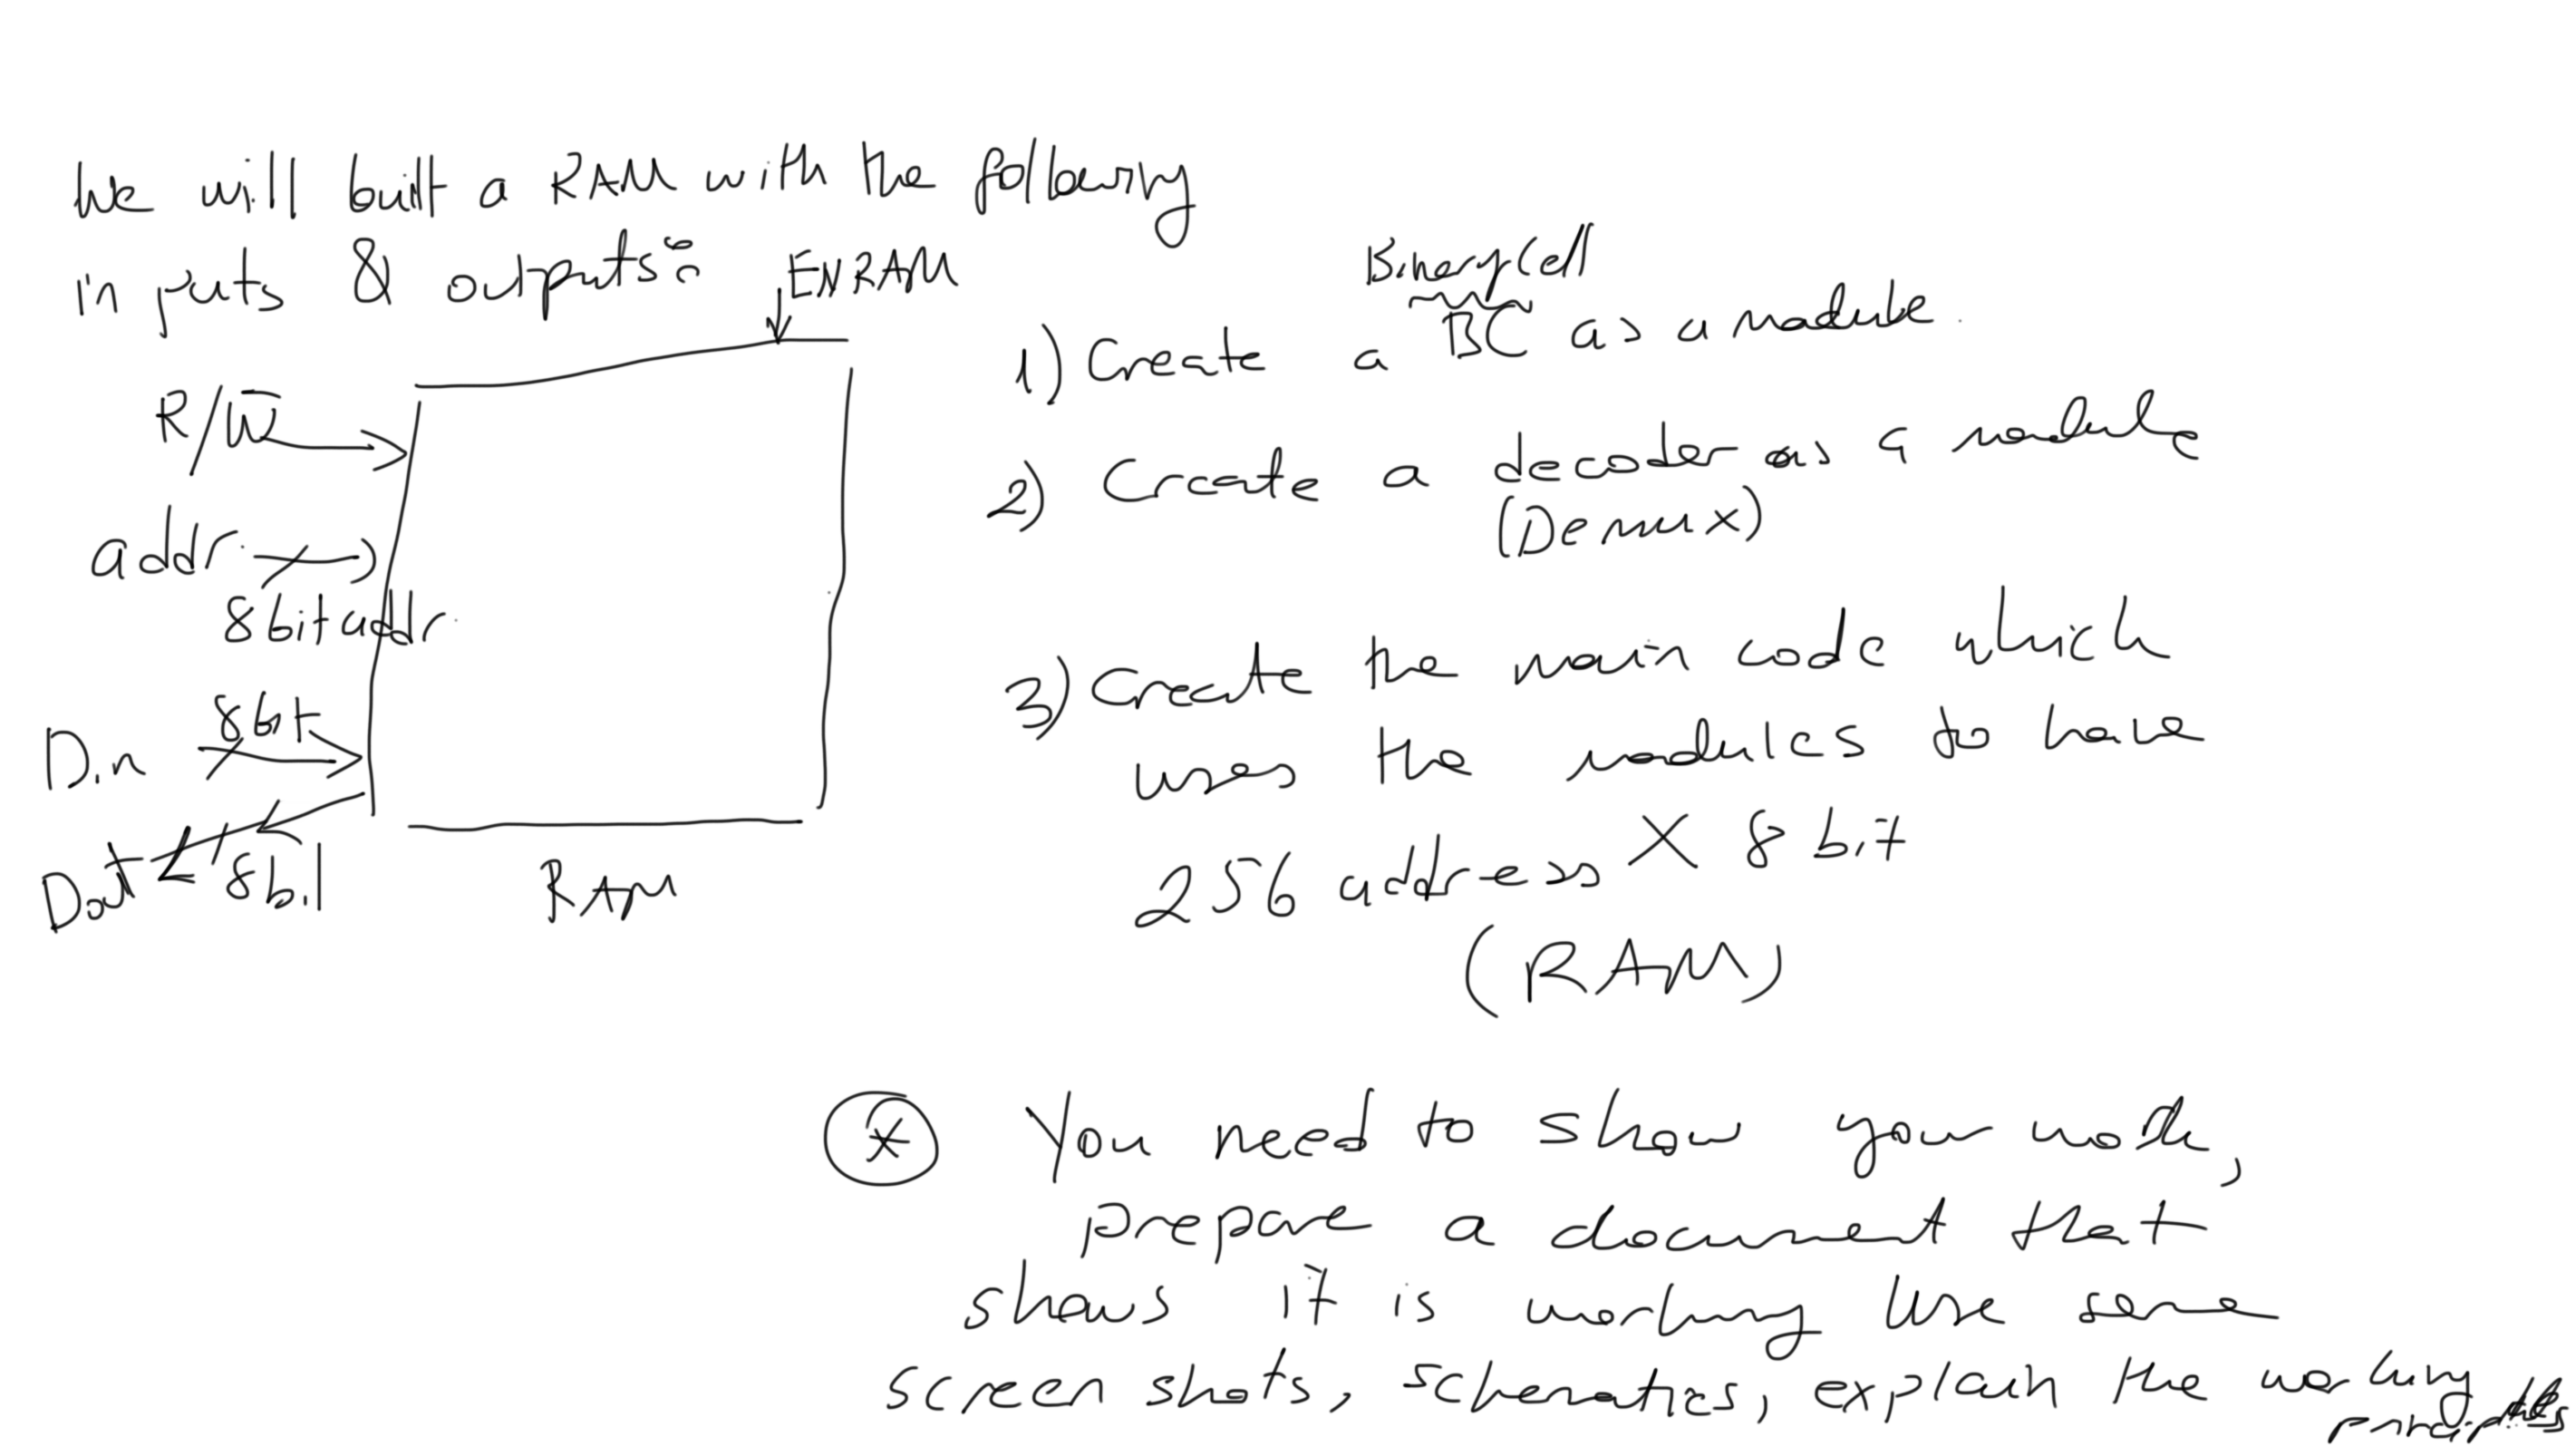 We will built a RAM with the following
inputs & outputs:
ENRAM
R/W̅
addr.
8 bit addr.
8 bit
Din
Dout
8 bit
RAM
Binary Cell
1) Create a BC as a module.
2) Create a decoder as a module
(Demux)
3) Create the main code which
uses the modules to have
256 address X 8 bit
(RAM)
* You need to show your work,
prepare a document that
shows it is working Use some
screen shots, schematics, explain the working
principles